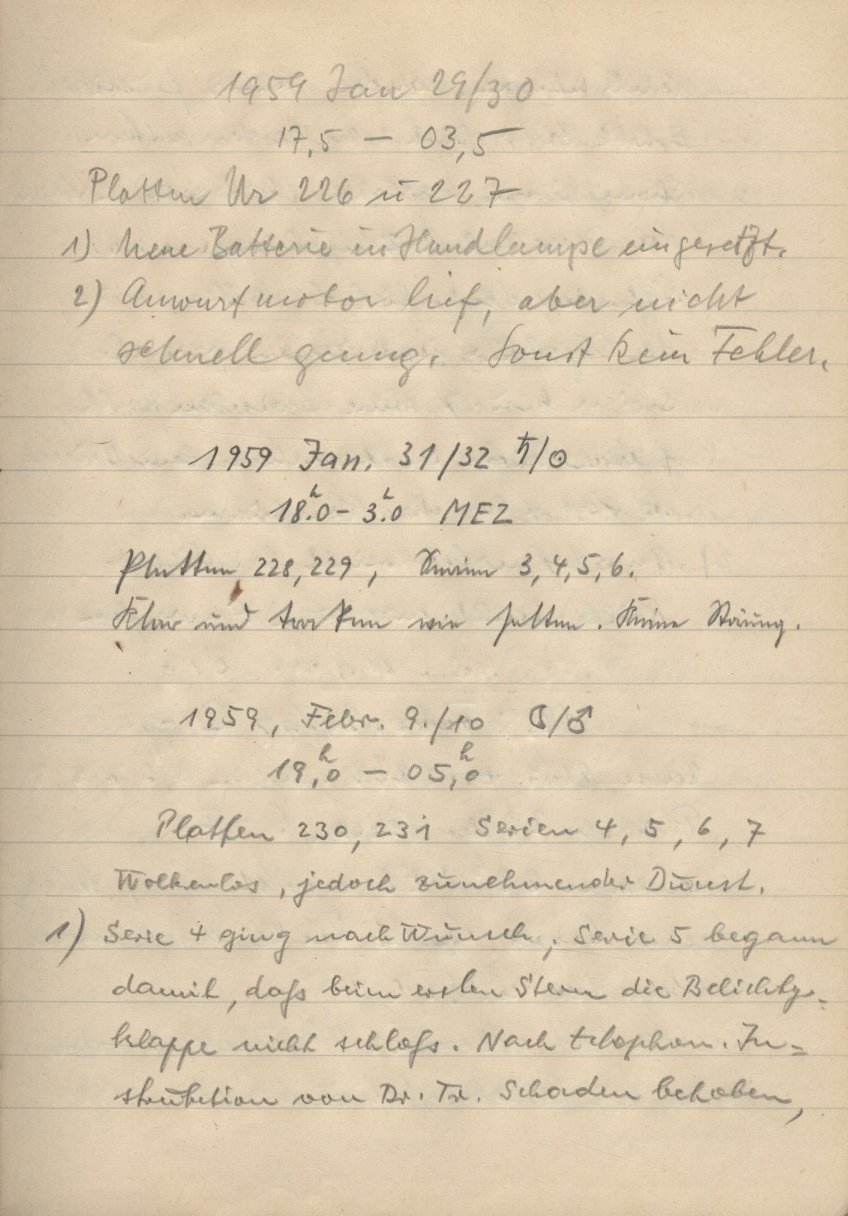 1959 Jan 29/30
17,5 — 03,5
Platten Nr 226 u 227
1) Neue Batterie in Handlampe eingesetzt.
2) Anwurfmotor lief, aber nicht
schnell genug. Sonst kein Fehler.
1959 Jan. 31/32 ♄/☉
18ʰ.0 - 3ʰ.0 MEZ
Platten 228, 229, Serien 3, 4, 5, 6.
Klar und trocken wie selten. Keine Störung.
1959, Febr. 9./10 ☾/♂
19,ʰ0 — 05,ʰ0
Platten 230, 231 Serien 4, 5, 6, 7
Wolkenlos, jedoch zunehmender Dunst.
1) Serie 4 ging nach Wunsch, Serie 5 begann
damit, daß beim ersten Stern die Belichtgs=
klappe nicht schloß. Nach telephon. In=
struktion von Dr. Tr. Schaden behoben,